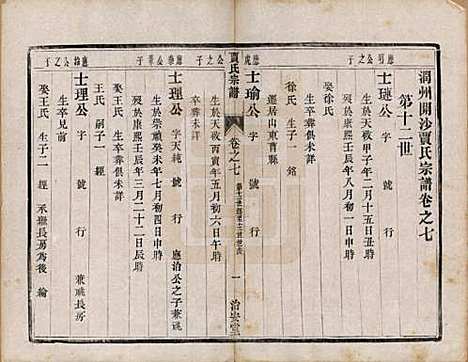 潤州開沙賈氏宗譜卷之七
第十二世
應 公之子
士璉公 字 號 行
生於天啟甲子年二月十五日丑時
歿於康熙壬辰年八月初一日申時
娶徐氏
徐氏 生子一 鎔
生卒葬俱未詳
應虎公之子
士瑜公 字 號 行
遷居山東曹縣
賈氏宗譜
卷之七
一
治安堂
生於天啟丙寅年五月初六日午時
卒葬未詳
應泰公嗣子
士理公 字天純 號 行 應治公之子兼祧
生於崇禎癸未年七月初四日申時
歿於康熙壬辰年三月二十二日辰時
娶王氏 生卒葬俱未詳
王氏 嗣子一 經
應治公之子
士理公 字 號 行 兼祧長房
生卒見前
娶王氏 生子二 經 承繼長房為後 綸